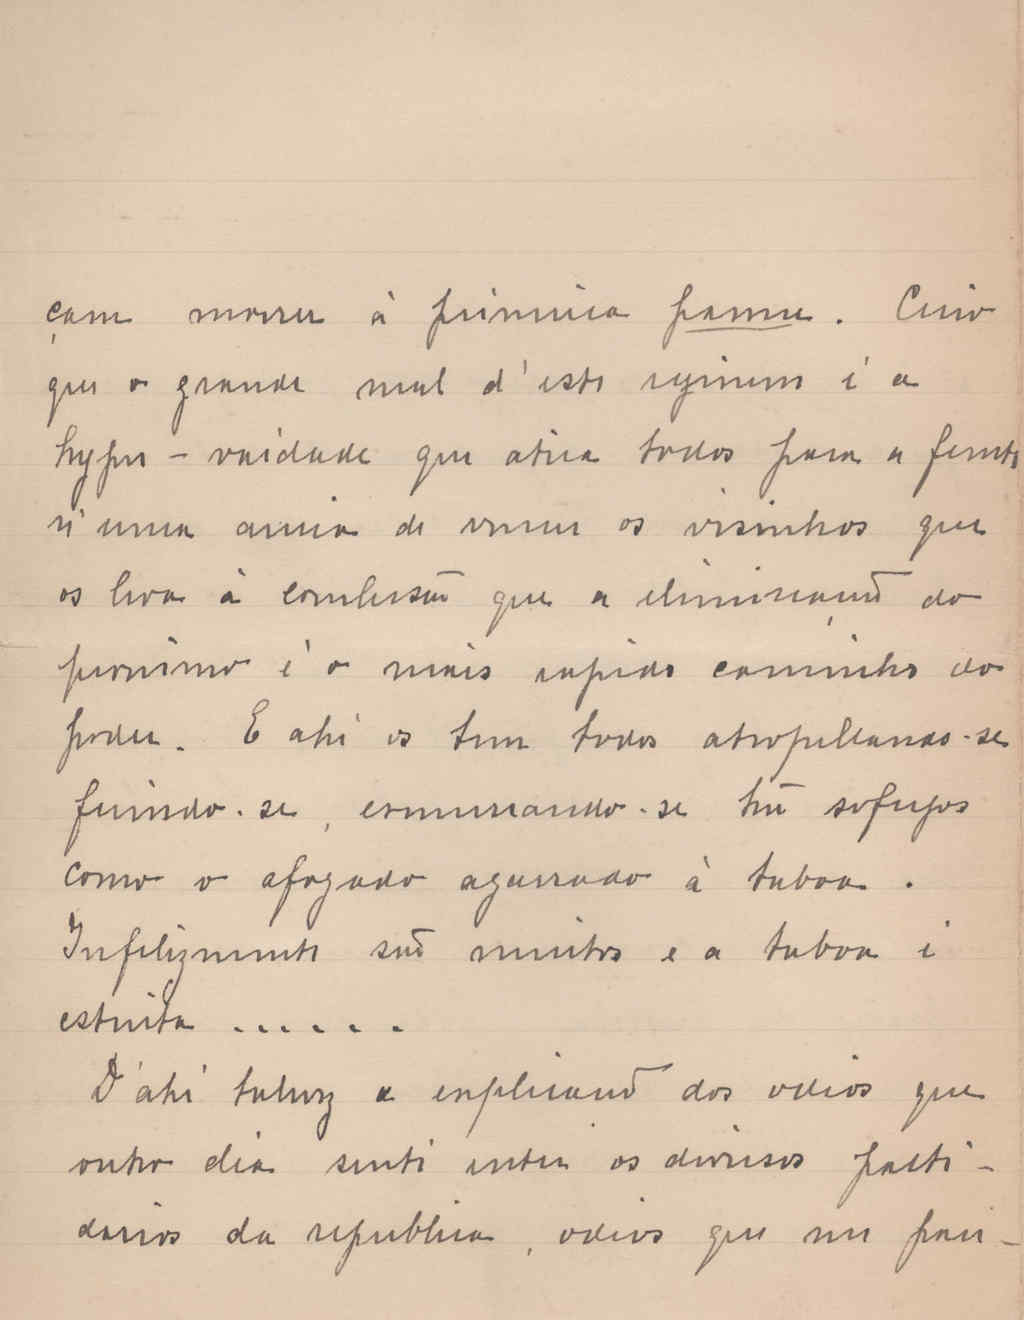 çam morrer à primeira panne. Creio
que o grande mal d'este regimem é a
hyper-vaidade que atira todos para a frente
n'uma ancia de vencer os visinhos que
os leva á conclusão que a eliminação do
proximo é o mais rapido caminho do
poder. E ahi os tem todos atropellando-se
ferindo-se, esmurrando-se tão sofregos
como o afogado agarrado à taboa.
Infelizmente são muitos e a taboa é
estreita ......
D'ahi talvez a explicação dos odios que
outro dia senti entre os diversos parti-
darios da republica, odios que me pare-